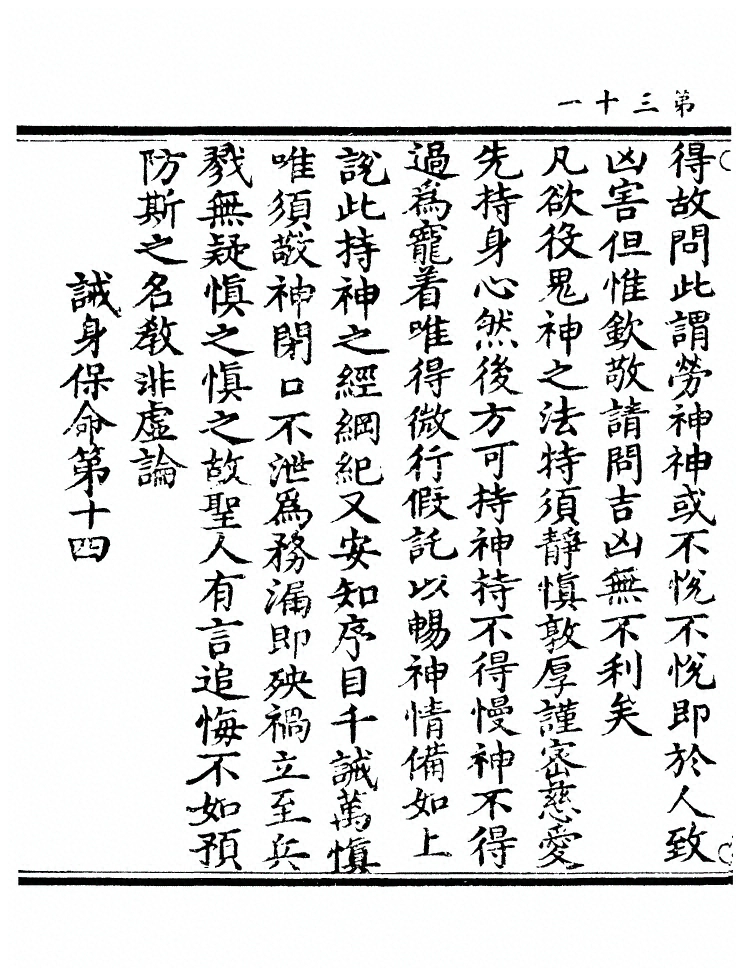 第三十一
得故問此謂勞神神或不悅不悅即於人致
凶害但惟欽敬請問吉凶無不利矣
凡欲役鬼神之法特須靜慎敦厚謹密慈愛
先持身心然後方可持神持不得慢神不得
過為寵着唯得微行假託以暢神情備如上
説此持神之經綱紀又安知序目千誡萬慎
唯須敬神閉口不泄為務漏即殃禍立至兵
戮無疑慎之慎之故聖人有言追悔不如預
防斯之名教非虛論
誡身保命第十四